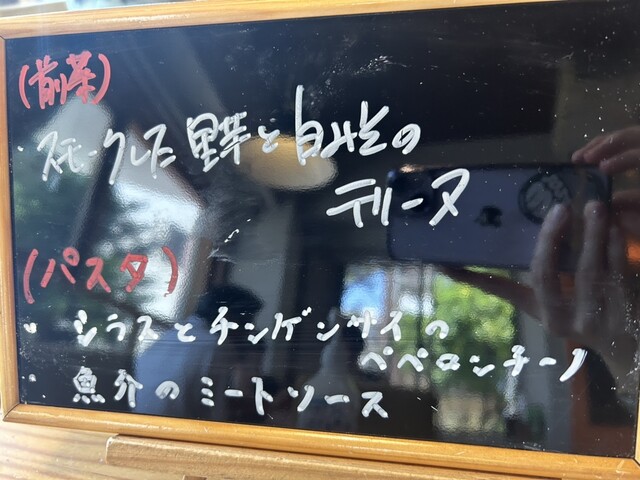 (前菜)
・スモークした鮮と白身の
テリーヌ
(パスタ)
・シラスとチンゲンサイの
ペペロンチーノ
・魚介のミートソース